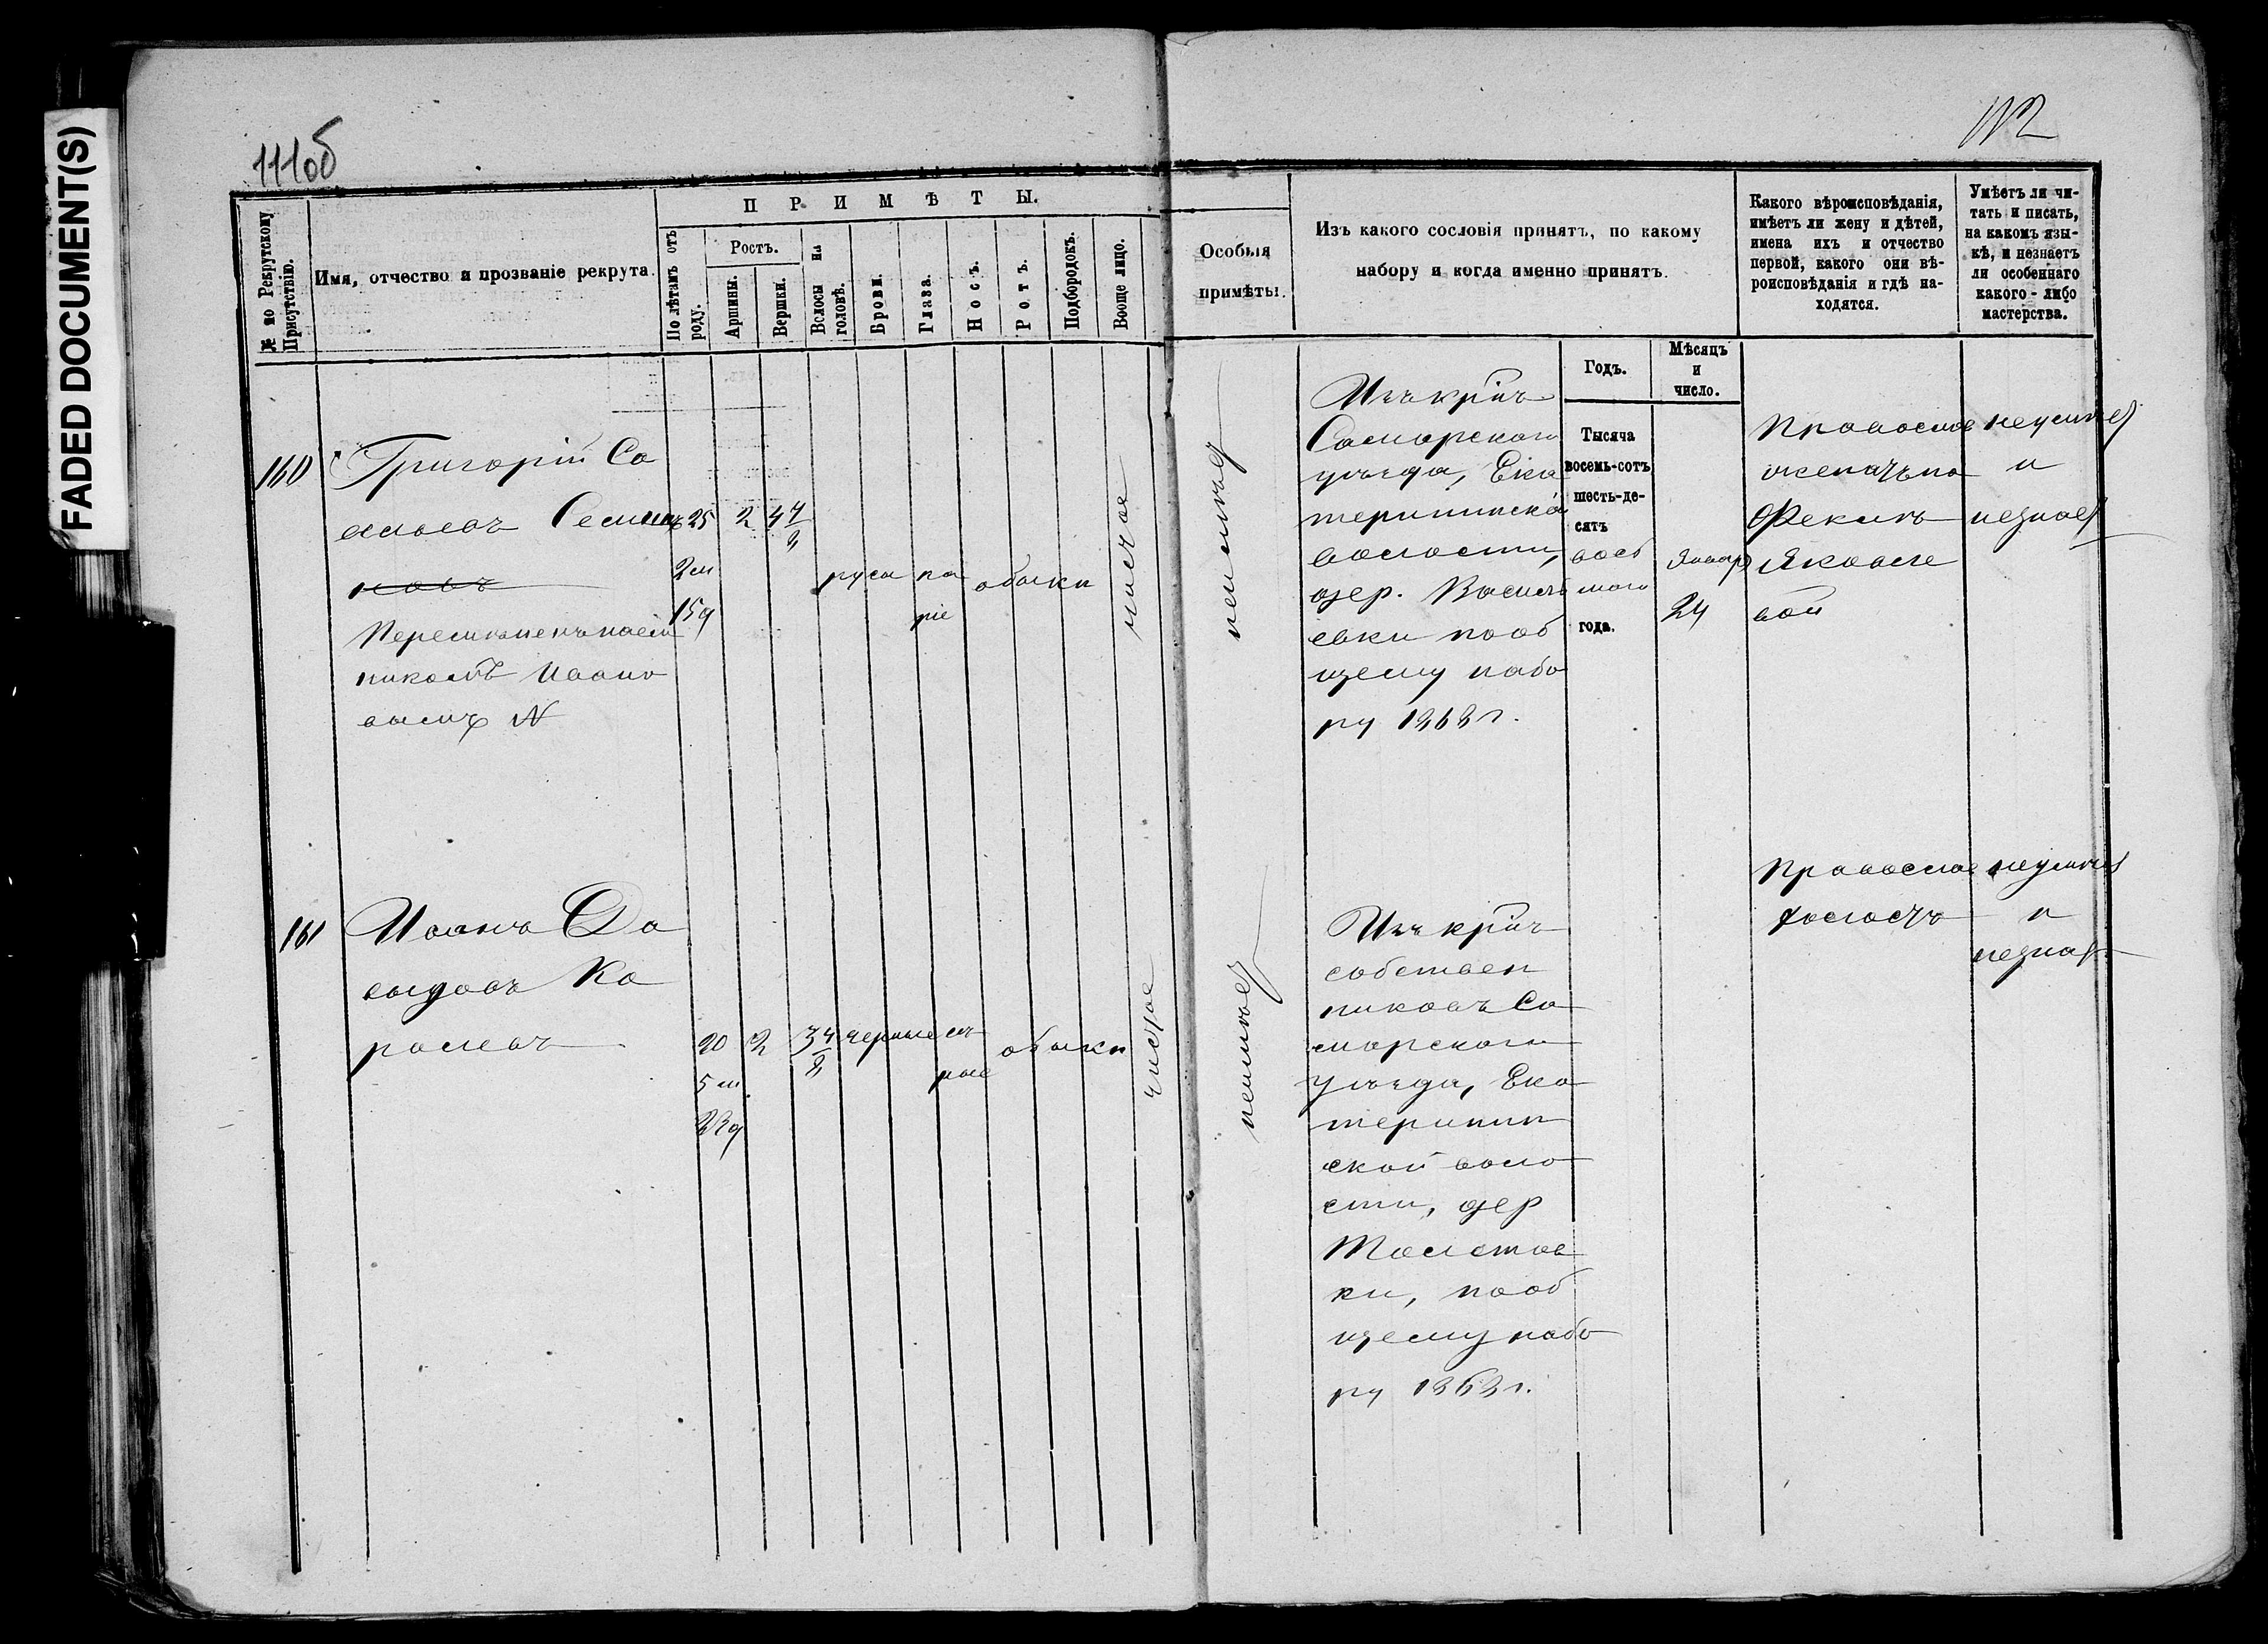 FADED DOCUMENT(S)
111об
112
№ по Рекрутскому Присутствію.
Имя, отчество и прозваніе рекрута.
ПРИМѢТЫ.
По лѣтамъ отъ роду.
Ростъ.
Аршины.
Вершки.
Волосы на головѣ.
Брови.
Глаза.
Носъ.
Ротъ.
Подбородокъ.
Вооще лицо.
Особыя
примѣты.
Изъ какого сословія принятъ, по какому
набору и когда именно принятъ.
Годъ.
Мѣсяцъ
и
число.
Какого вѣроисповѣданія,
имѣетъ ли жену и дѣтей,
имена ихъ и отчество
первой, какого они вѣ-
роисповѣданія и гдѣ на-
ходятся.
Умѣетъ ли чи-
тать и писать,
на какомъ язы-
кѣ, и незнаетъ
ли особеннаго
какого-либо
мастерства.
160
Григорій Са
вельевъ
новъ
Ивано
вымъ N
25
2 м
15 д
2
4 4/8
русы
ка
ріе
обыкн
чистое
неимѣет
Изъ крґнъ
Самарскаго
уѣзда, Ека
терининской
волости,
дер. Василь
евки пооб
щему набо
ру 1868 г.
Тысяча
восемь-сотъ
шесть-де-
сятъ
вось
маго
года.
Январ
24
Православ
женатъ на
Феклѣ
Яковле
вой
неумѣет
и
незнает
161
Иванъ Да
выдовъ Ка
20
5 м
23 д
2
3 4/8
черные
сѣ
рые
обыкн
чистое
неимѣет
Изъ крґнъ
собствен
никовъ Са
марскаго
уѣзда, Ека
теринин
ской воло
сти, дер
Толстов
ки, пооб
щему набо
ру 1868 г.
Православ
холостъ
неумѣет
и
незнает